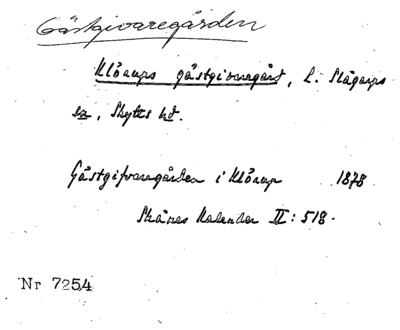 Gästgivaregården
Klörups gästgivaregård, L. Slågarps
sn, Skytts hd.
Gästgifvaregården i Klörup 1878
Skånes Kalender II: 518.
Nr 7254